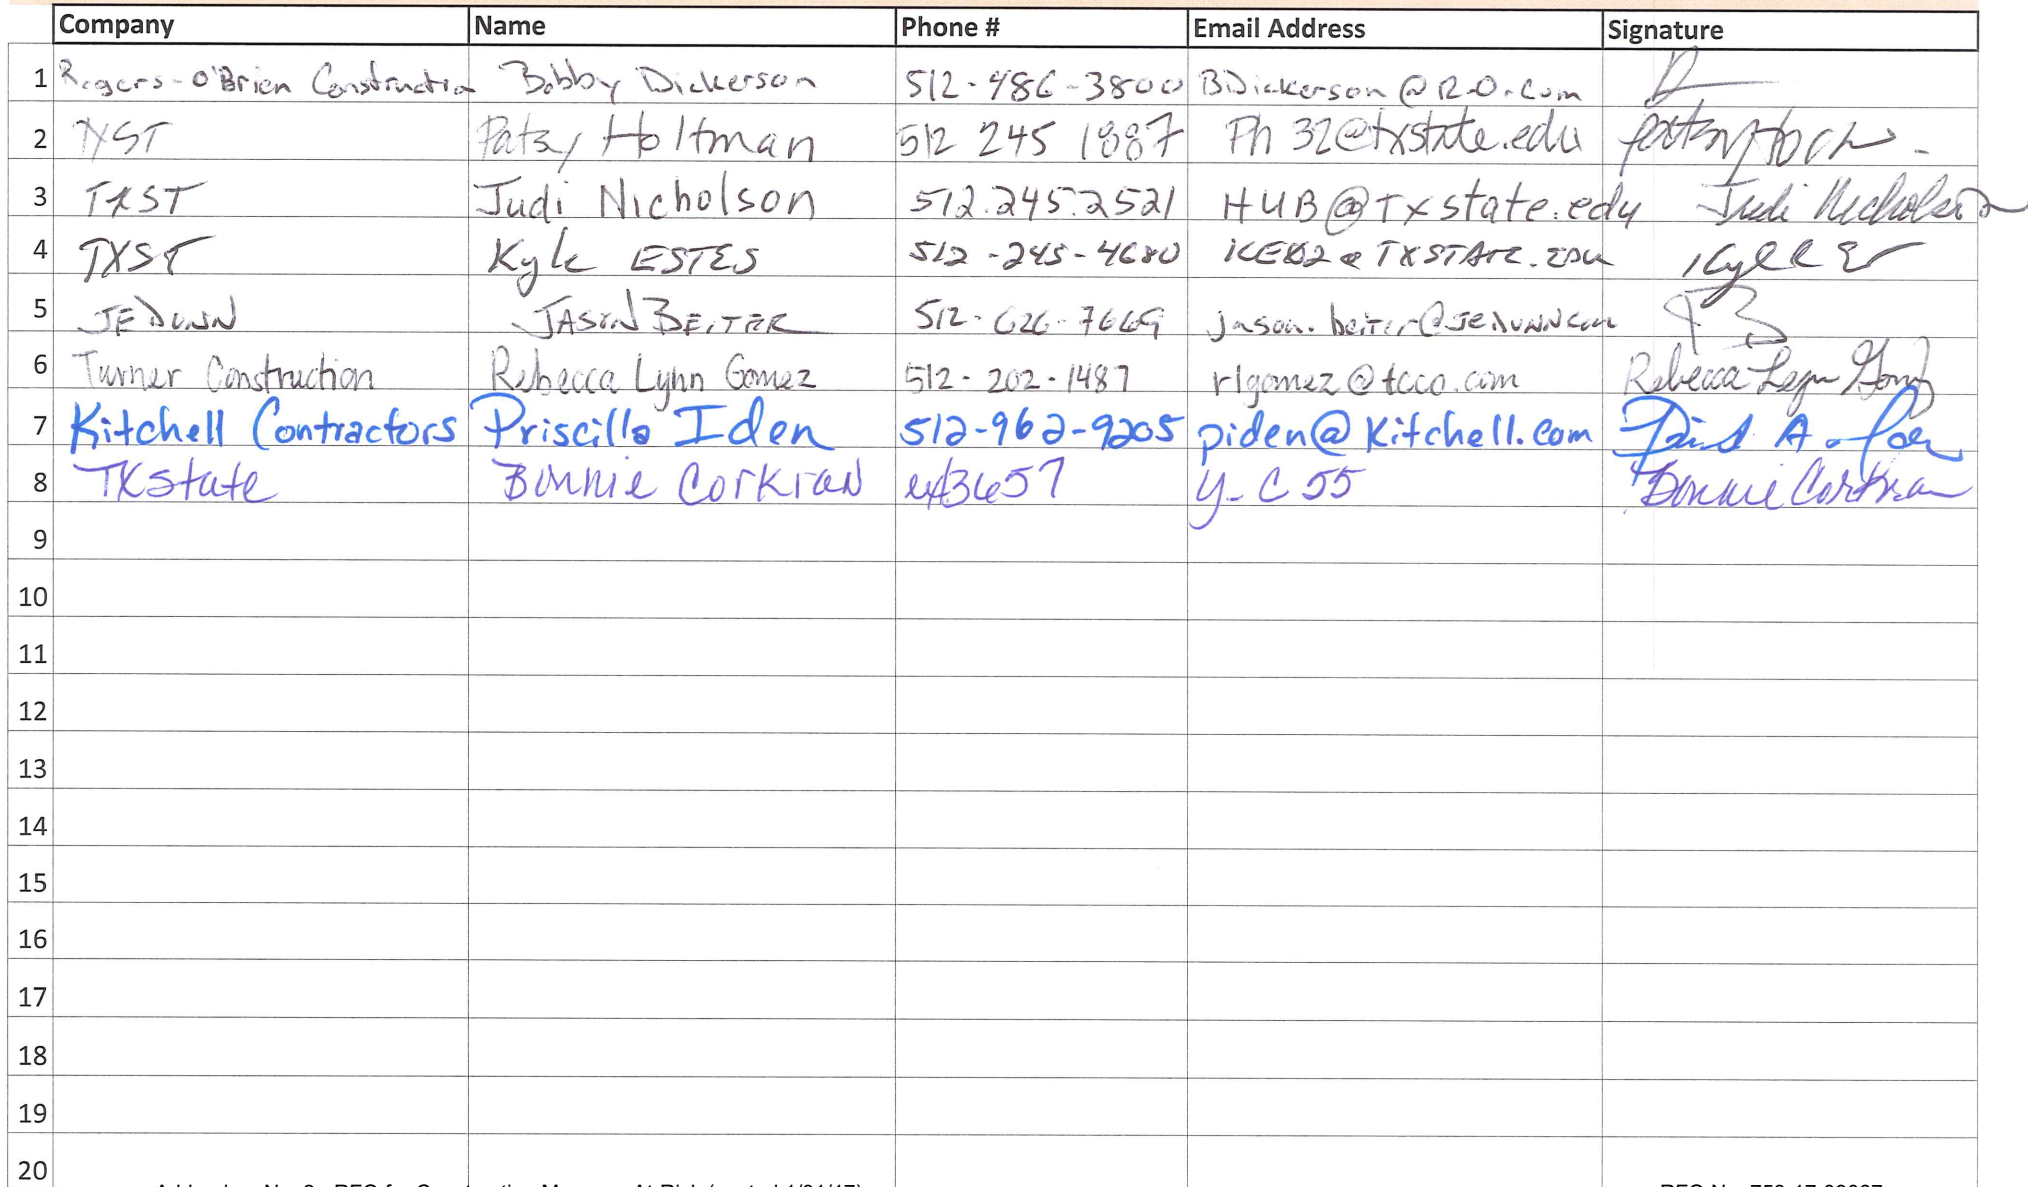 Company Name Phone # Email Address Signature
1 Rogers-O'Brien Construction Bobby Dickerson 512-486-3800 BDickerson@R-O.com
2 TXST Patsy Holtman 512 245 1887 Ph32@txstate.edu
3 TXST Judi Nicholson 512.245.2521 HUB@Txstate.edu Judi Nicholson
4 TXST Kyle ESTES 512-245-4680 @TXSTATE.EDU
5 JE DUNN JASON BEITER 512-626-7669 jason.beiter@JEDUNN.com
6 Turner Construction Rebecca Lynn Gomez 512-202-1487 rlgomez@tcco.com Rebecca Lynn Gomez
7 Kitchell Contractors Priscilla Iden 512-962-9205 piden@Kitchell.com
8 TXstate Bonnie Corkran ext3657 y-C55 Bonnie Corkran
9
10
11
12
13
14
15
16
17
18
19
20